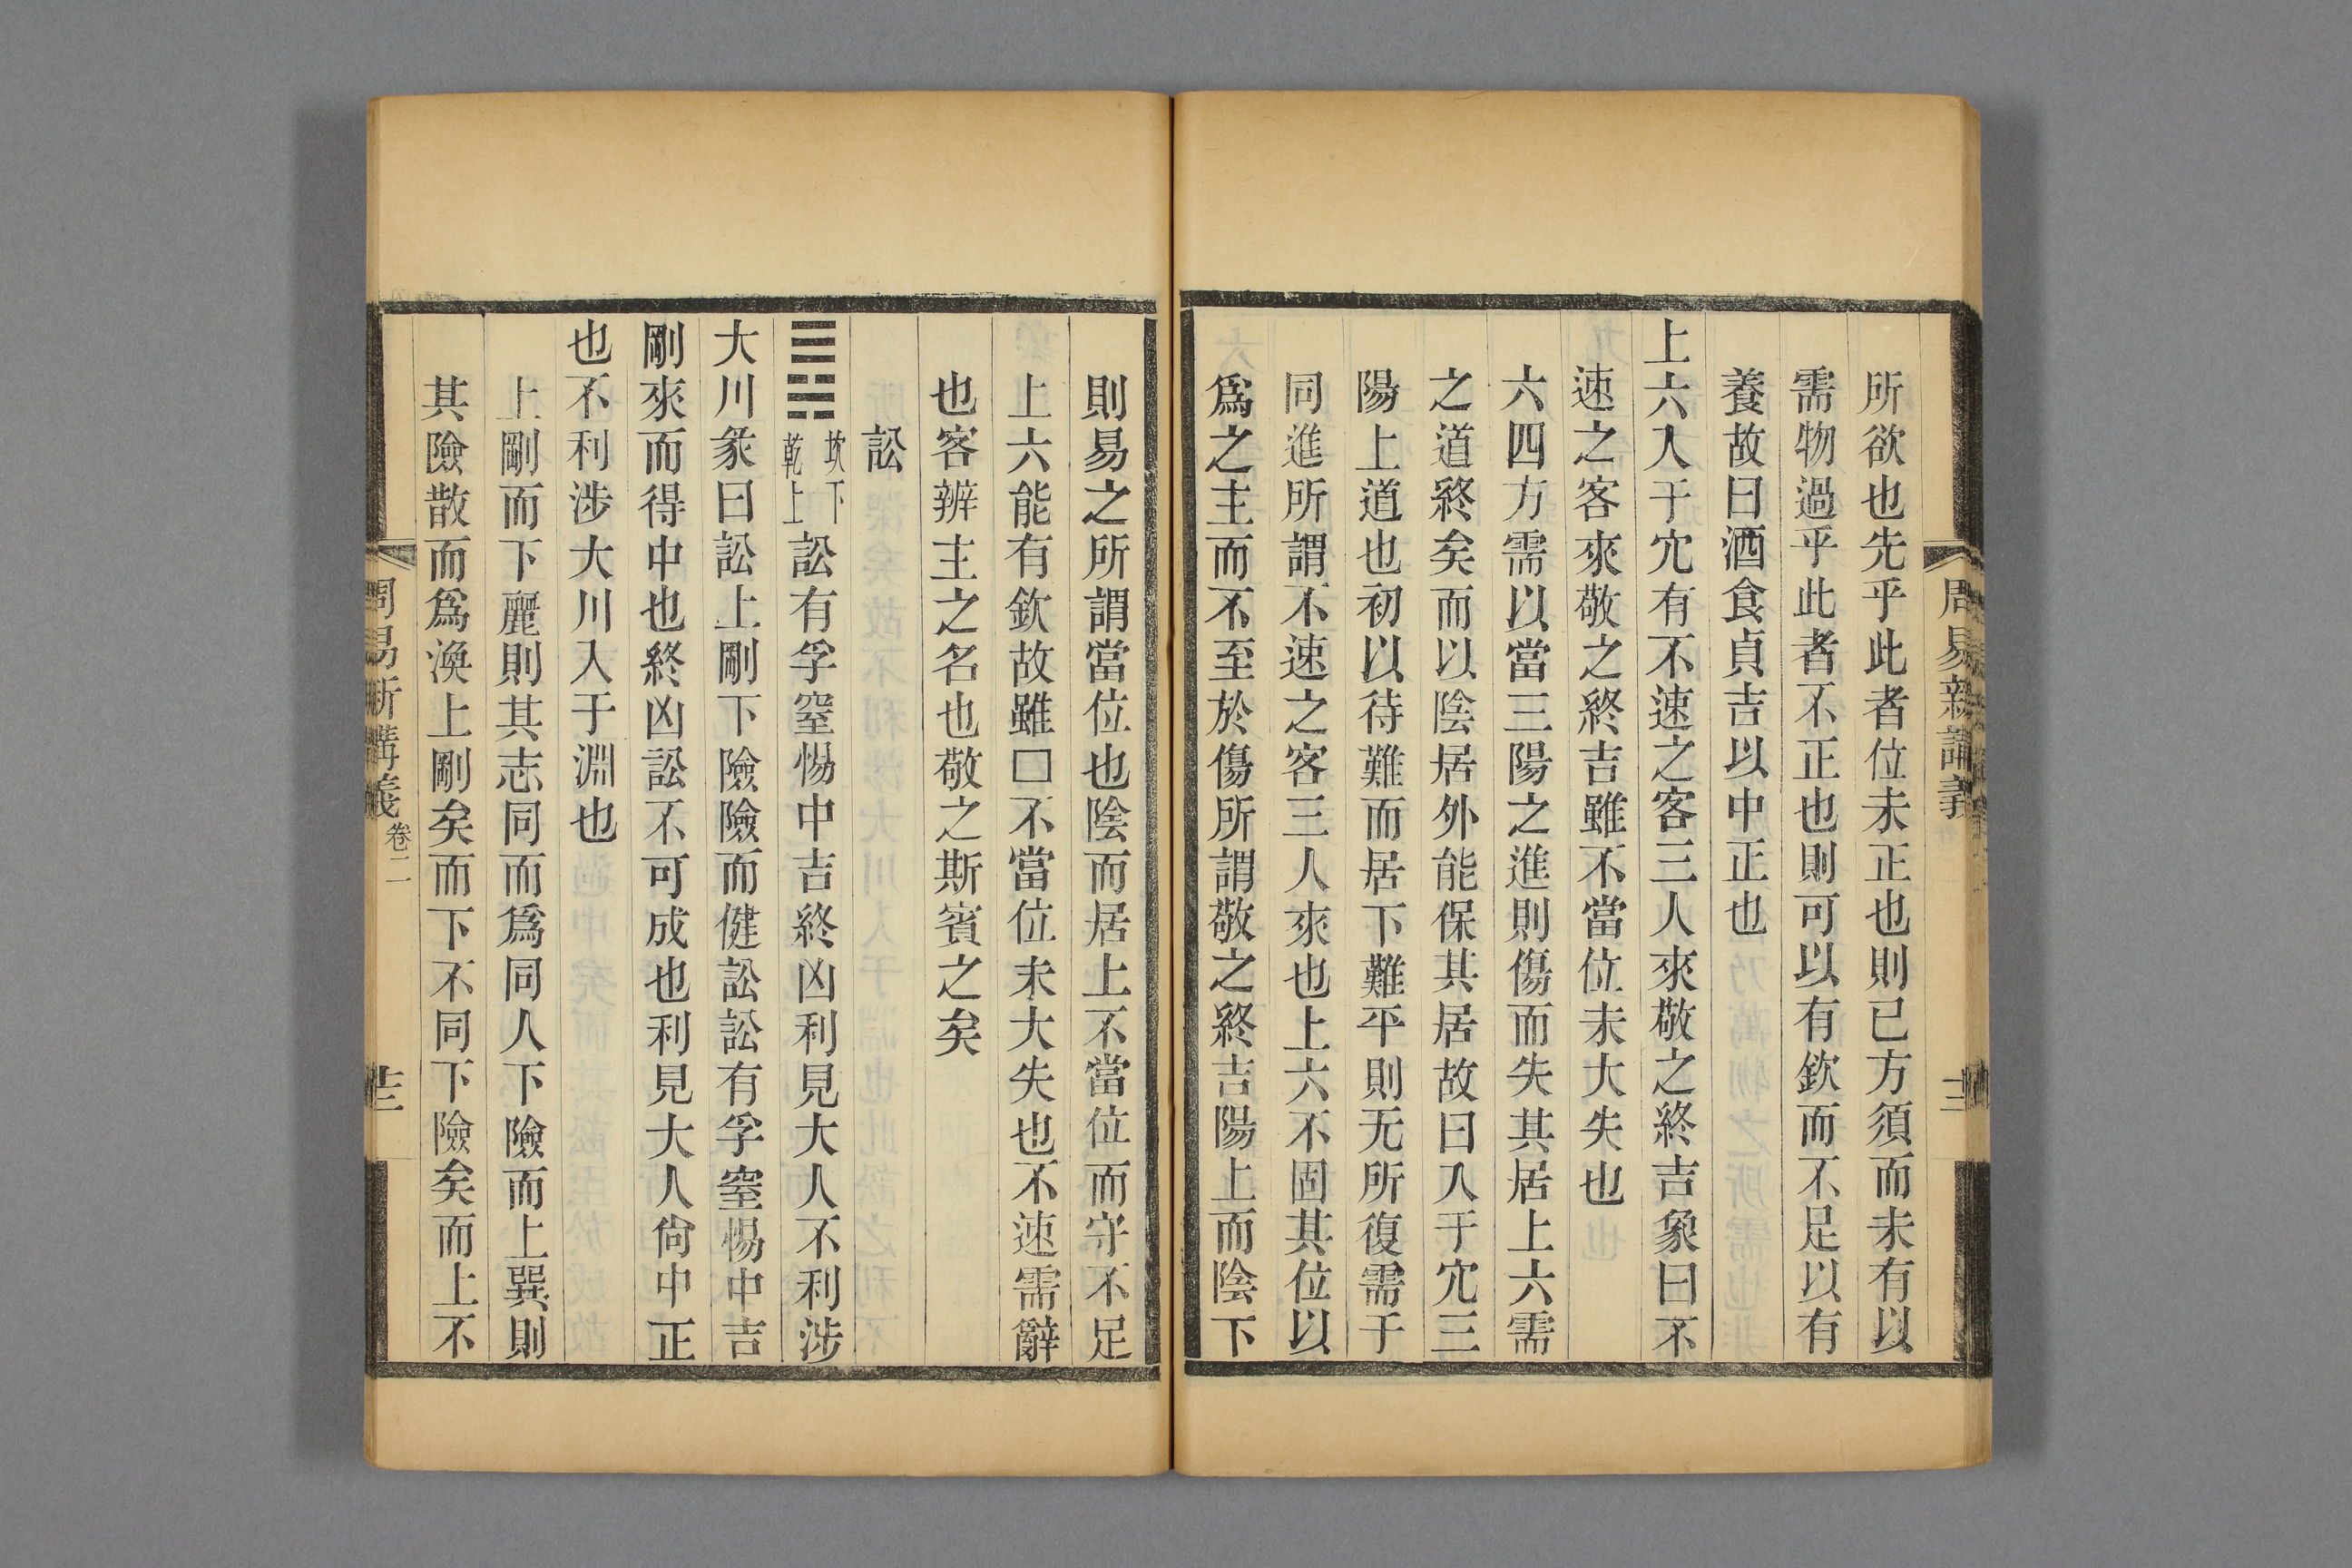 所欲也先乎此者位未正也則已方須而未有以
需物過乎此者不正也則可以有欽而不足以有
養故曰酒食貞吉以中正也
上六入于穴有不速之客三人來敬之終吉象曰不
速之客來敬之終吉雖不當位未大失也
六四方需以當三陽之進則傷而失其居上六需
之道終矣而以陰居外能保其居故曰入于穴三
陽上道也初以待難而居下難平則无所復需于
同進所謂不速之客三人來也上六不固其位以
爲之主而不至於傷所謂敬之終吉陽上而陰下
則易之所謂當位也陰而居上不當位而守不足
上六能有欽故雖□不當位未大失也不速需辭
也客辨主之名也敬之斯賓之矣
訟
䷅ 坎下乾上 訟有孚窒惕中吉終凶利見大人不利涉
大川彖曰訟上剛下險險而健訟訟有孚窒惕中吉
剛來而得中也終凶訟不可成也利見大人尙中正
也不利涉大川入于淵也
上剛而下麗則其志同而爲同人下險而上巽則
其險散而爲渙上剛矣而下不同下險矣而上不
周易新講義 卷二